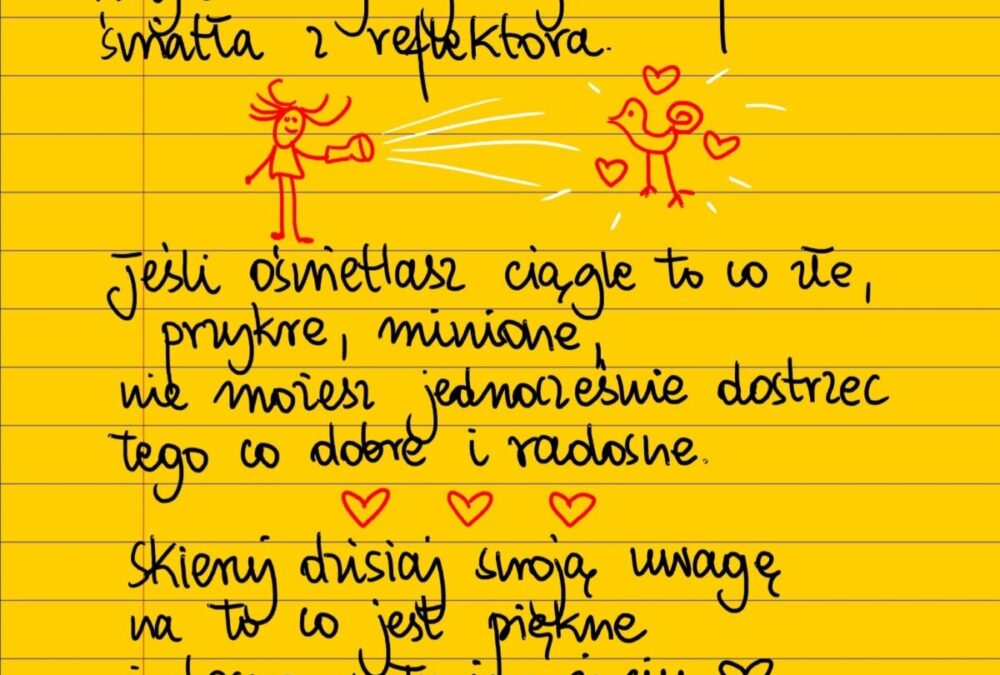 światła z reflektora.
Jeśli oświetlasz ciągle to co złe,
przykre, minione,
nie możesz jednocześnie dostrzec
tego co dobre i radosne.
Skieruj dzisiaj swoją uwagę
na to co jest piękne